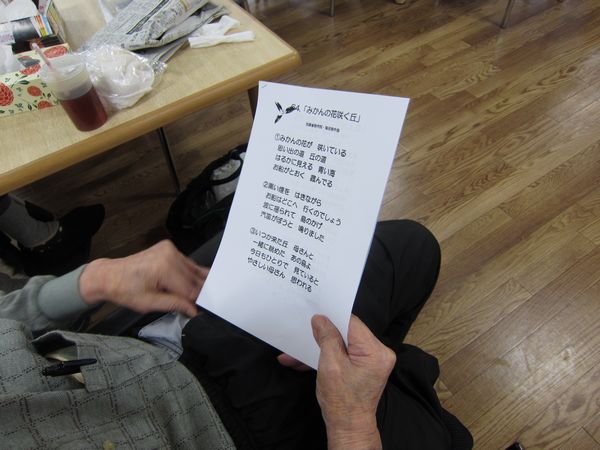 4.「みかんの花咲く丘」
①みかんの花が 咲いている
思い出の道 丘の道
はるかに見える 青い海
お船がとおく 霞んでる
②黒い煙を はきながら
お船はどこへ 行くのでしょう
波に揺られて 島のかげ
汽笛がぼうと 鳴りました
③いつか来た丘 母さんと
一緒に眺めた あの島よ
今日もひとりで 見ていると
やさしい母さん 思われる